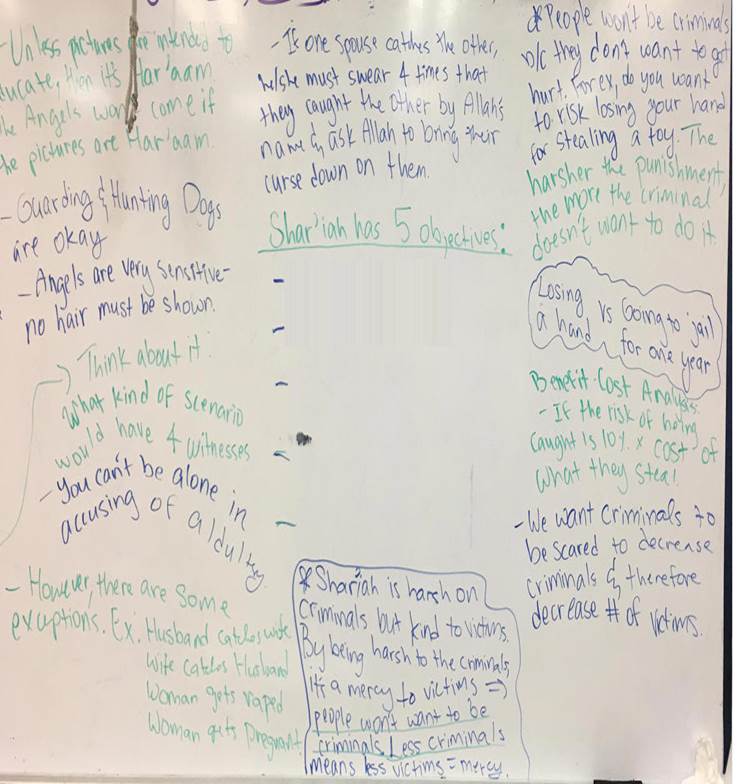 - Unless pictures are intended to
educate, then it's Har'aam.
The Angels won't come if
the pictures are Har'aam.
- Guarding & Hunting Dogs
are okay
- Angels are very sensitive-
no hair must be shown.
Think about it:
What kind of scenario
would have 4 witnesses
- You can't be alone in
accusing of aldultry
- However, there are some
exuptions. Ex. Husband catches wife
Wife catches Husband
Woman gets raped
Woman gets Pregnant
- If one spouse catches the other,
he/she must swear 4 times that
they caught the other by Allah's
name & ask Allah to bring their
curse down on them.
Shar'iah has 5 objectives:
-
-
-
-
-
* Shariah is harsh on
criminals but kind to victims.
By being harsh to the criminals,
it's a mercy to victims ⇒
people won't want to be
criminals. Less criminals
means less victims = mercy
* People won't be criminals
b/c they don't want to get
hurt. For ex, do you want
to risk losing your hand
for stealing a toy. The
harsher the punishment,
the more the criminal
doesn't want to do it.
Losing vs Going to jail
a hand for one year
Benefit-Cost Analysis
- If the risk of being
caught is 10% x cost of
what they steal
- We want criminals to
be scared to decrease
criminals & therefore
decrease # of victims.